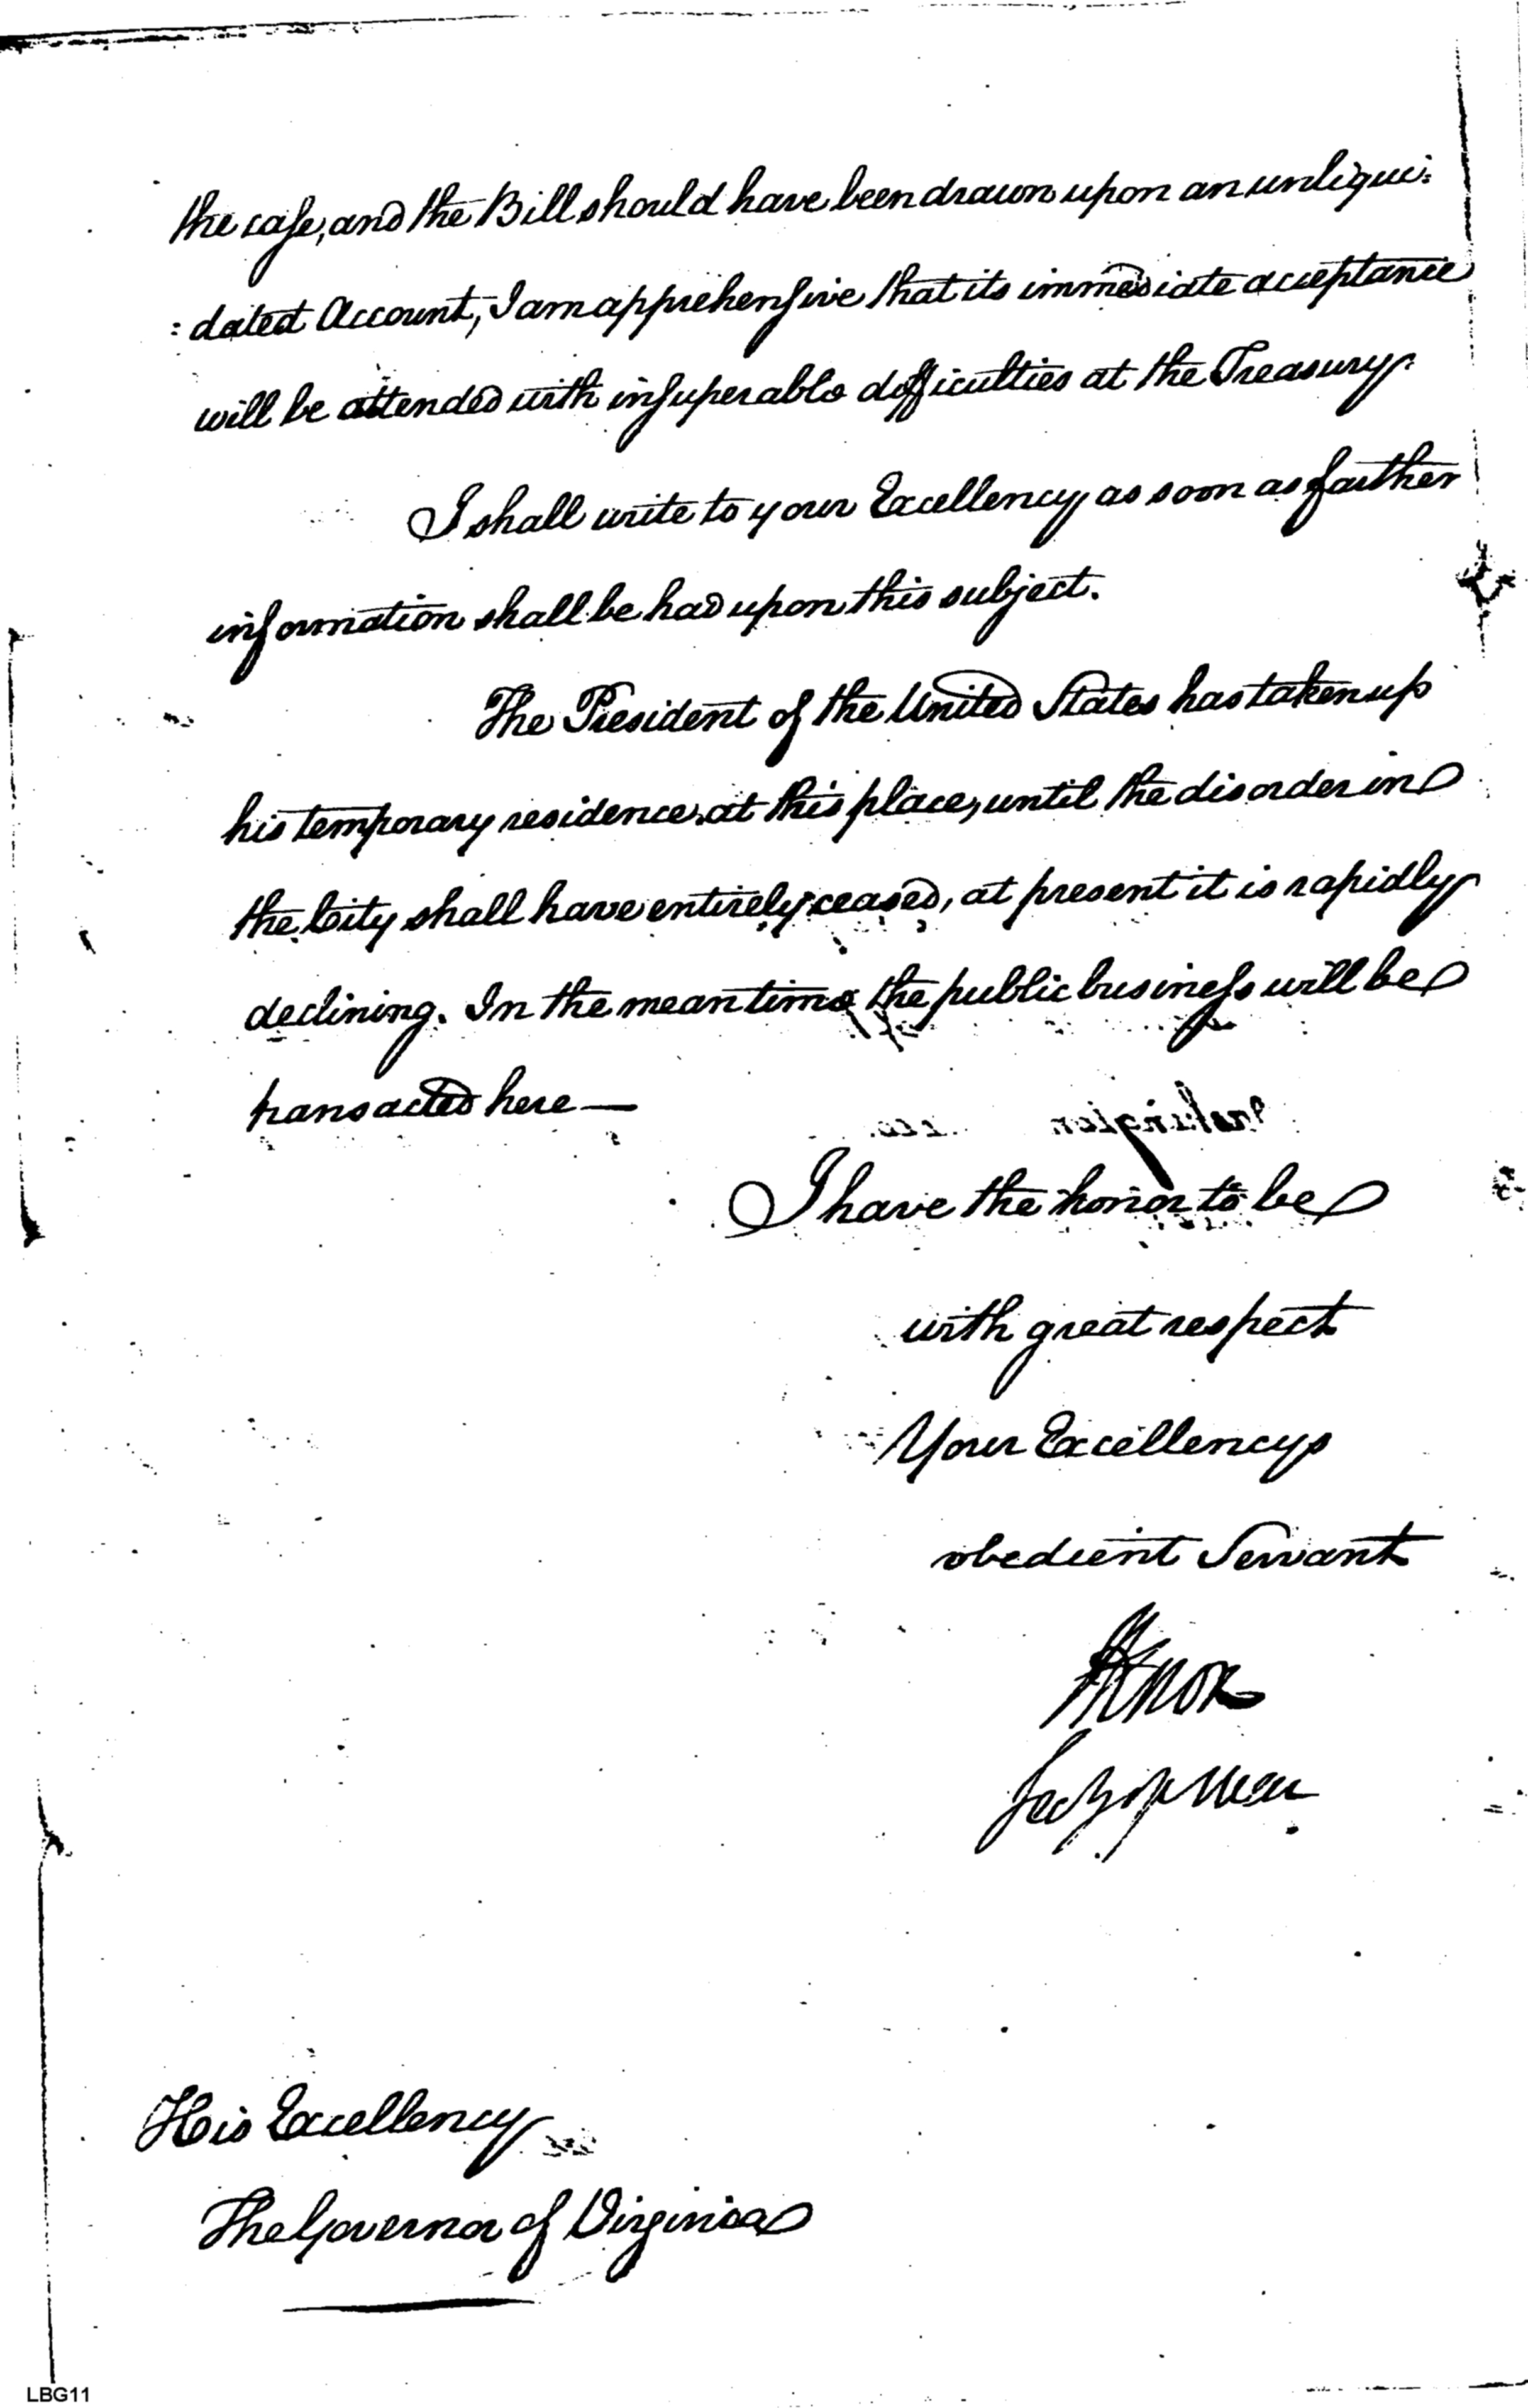 the case, and the Bill should have been drawn upon an unliqui:
: dated Account, I am apprehensive that its immediate acceptance
will be attended with insuperable difficulties at the Treasury.
I shall write to your Excellency as soon as farther
information shall be had upon this subject.
The President of the United States has taken up
his temporary residence at this place, until the disorder in
the City shall have entirely ceased, at present it is rapidly
declining. In the mean time the public business will be
transacted here —
I have the honor to be
with great respect
Your Excellencys
obedient Servant
HKnox
Secy of War
His Excellency
The Governor of Virginia
LBG11